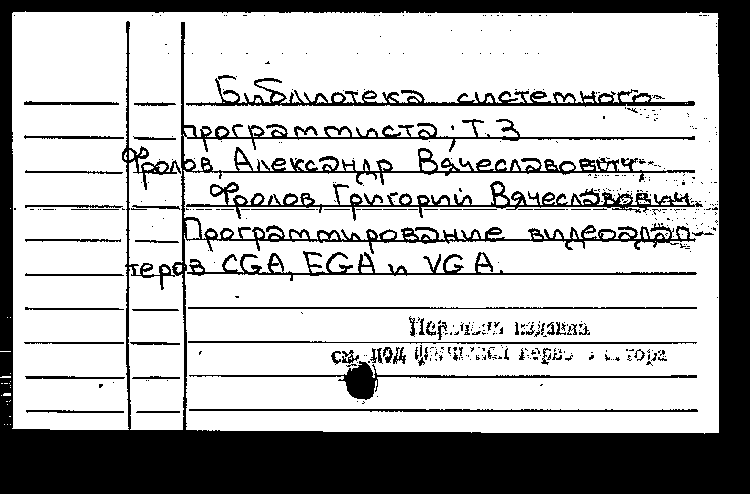 Библиотека системного
программиста; Т.3
Фролов, Александр Вячеславович,
Фролов, Григорий Вячеславович
Программирование видеоадап-
теров CGA, EGA и VGA.
издания
см. под